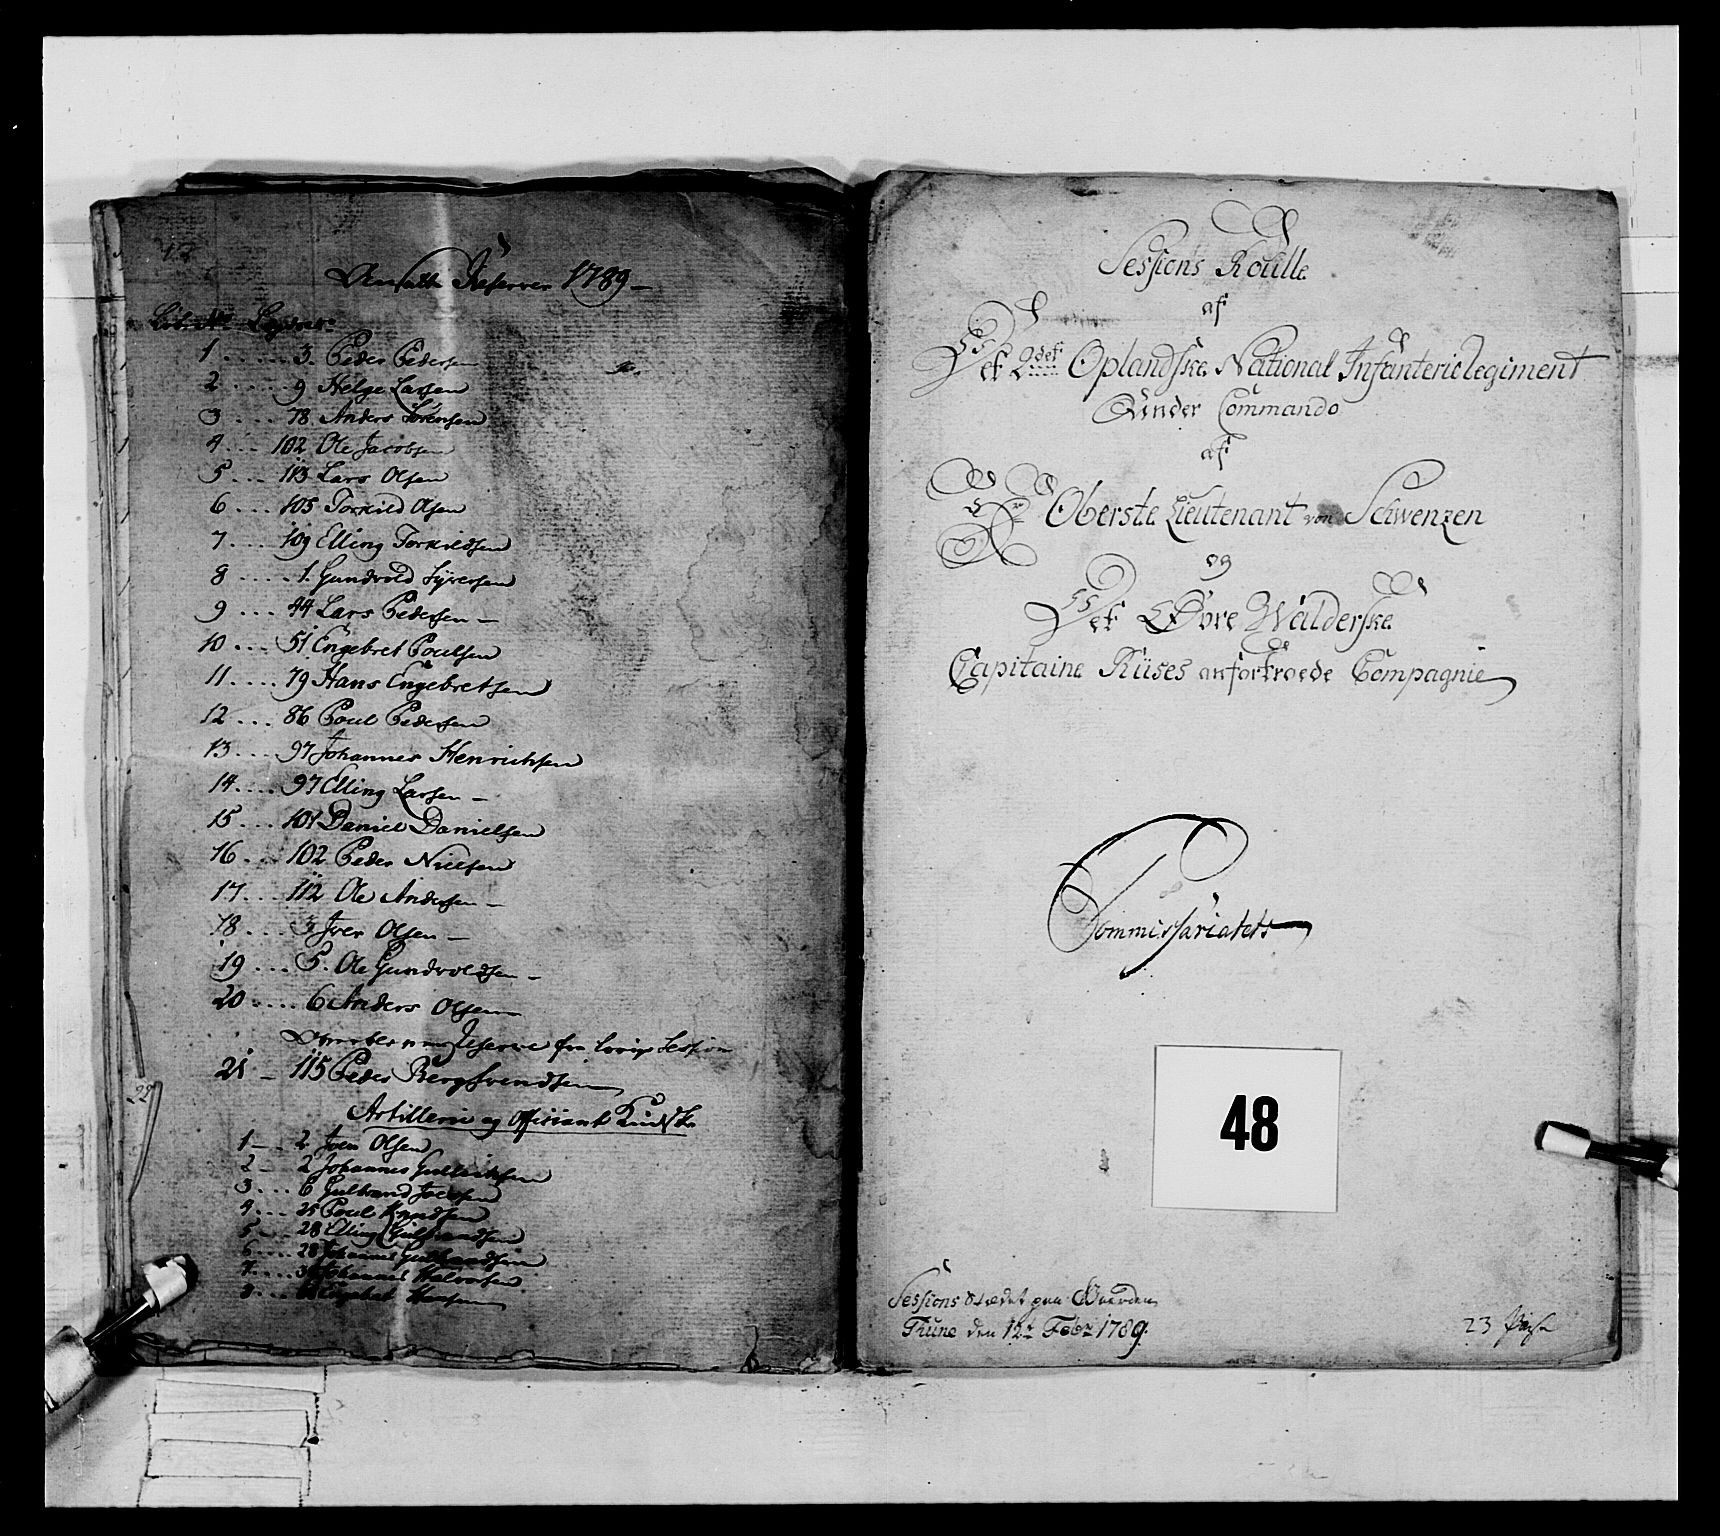 Ansatte Reserver 1789
Lit: No Legdnr.
1 . . . . . 3. Peder Pedersen
2 . . . . . 9 Helge Larsen
3 . . . . 78 Anders Sörensen
4 . . . 102 Ole Jacobsen
5 . . . 113 Lars Olsen
6 . . . 105 Torkild Olsen
7 . . . . 109 Elling Torkildsen
8 . . . . . 1. Gundvold Syversen
9 . . . . 44 Lars Pedersen
10 . . . 51 Engebret Poulsen
11 . . . . 79 Hans Engebretsen
12 . . . 86 Poul Pedersen
13 . . . 97 Johannes Henrichsen
14 . . . . 97 Elling Larsen
15 . . . 101 Daniel Danielsen
16 . . . 102 Peder Nielsen
17 . . . 112 Ole Andersen
18 . . . . 3 Iver Olsen
19 . . . 5. Ole Gundvoldsen
20 . . . . 6 Anders Olsen
Reserve fra Session
21 — 115 Peder Bergsvendsen
Artillerie og
1 — . . 2 Iver Olsen
2 — 2 Johannes Gulleichsen
3 . . . 6 Gulbrand
4 . . . 25 Poul Knudsen
5 . . . 28 Elling Gulbrandsen
6 . . . . 28 Johannes Gulbrandsen
7 . . . . Johannes Halvorsen
8 . . . Hansen
Sessions Roulle
af
Det 2det Oplandske National Infanterie Regiment
Under Commando
af
Hr Oberste Lieutenant von Schwenzen
og
Det Øvre Walderske
Capitaine Rüses anfortroede Compagnie
Commissariatets
48
Sessions Stædet paa Gaarden
Thune den 12te Febr 1789.
23